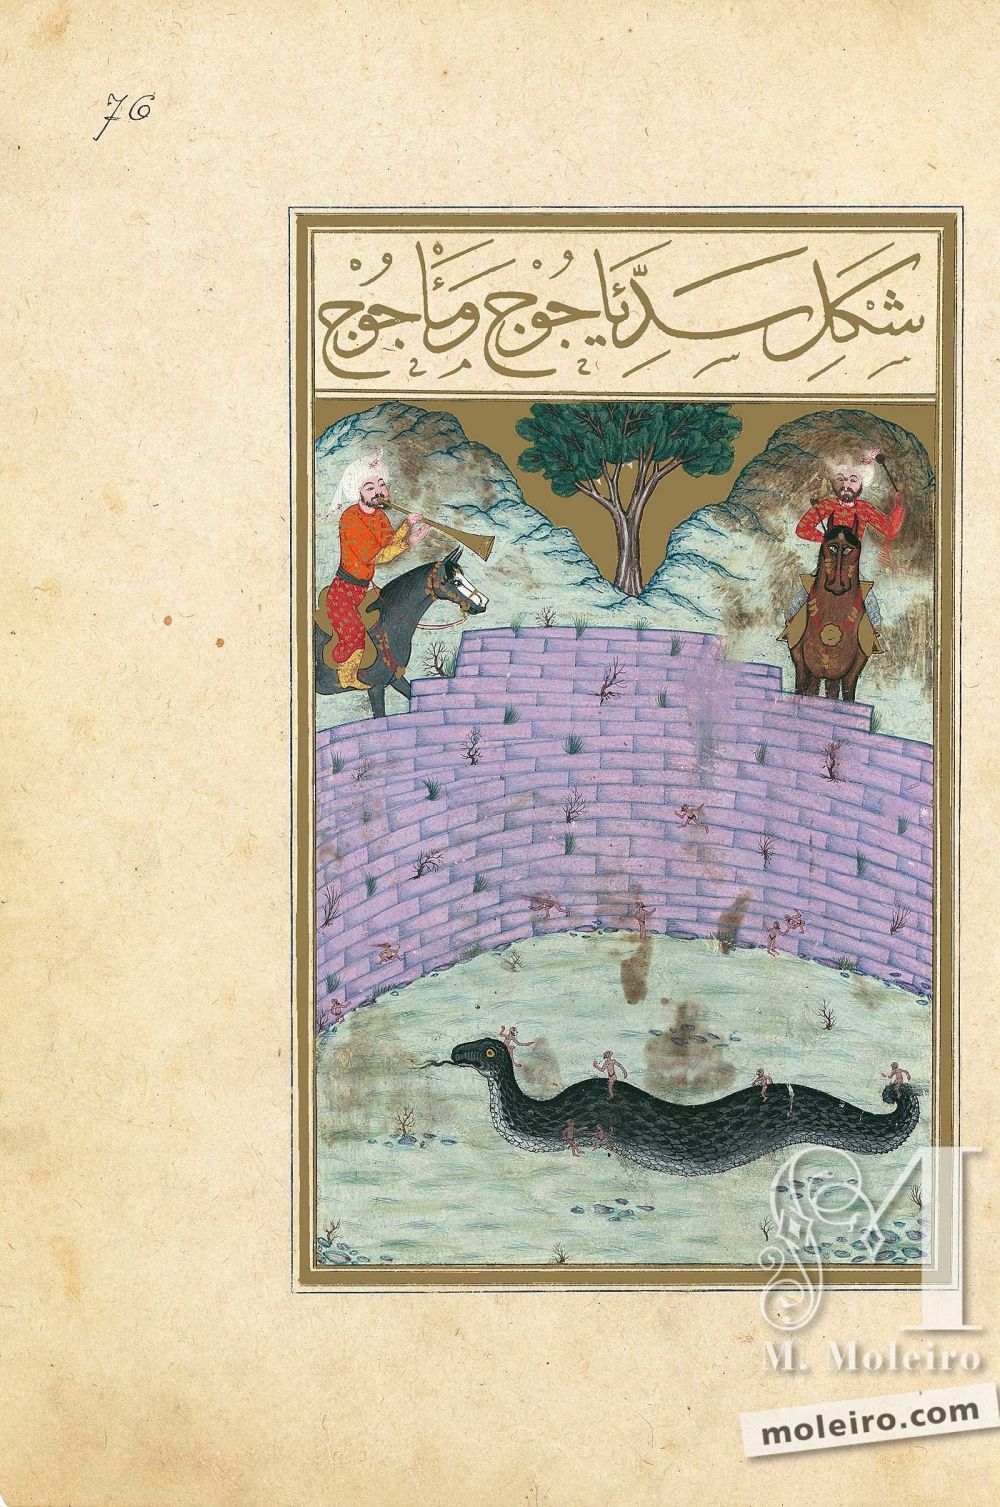 76
شَكْلِ سَدِّ يَأْجُوْجْ وَمَأْجُوْجْ
M. Moleiro
moleiro.com